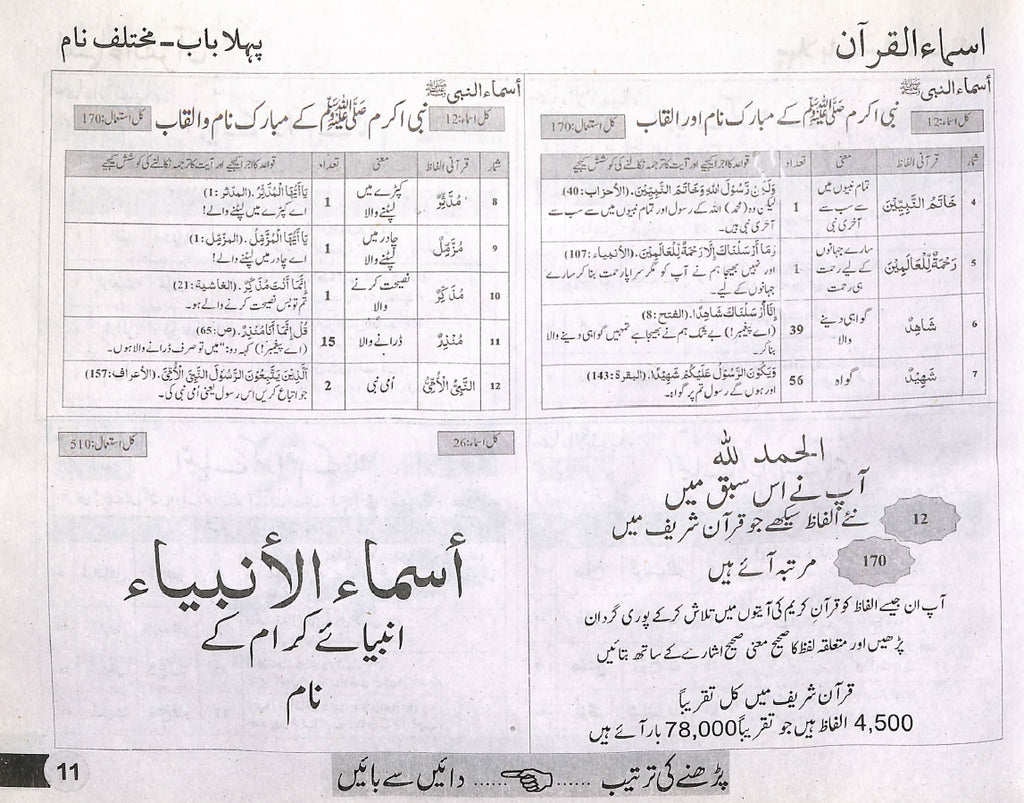 اسماء القرآن
پہلا باب - مختلف نام
أسماء النبي ﷺ
کل اسماء:12
نبی اکرم ﷺ کے مبارک نام اور القاب
کل استعمال:170
شمار قرآنی الفاظ معنی تعداد قواعد کا اجرا کیجیے اور آیت کا ترجمہ نکالنے کی کوشش کیجیے
4 خَاتَمُ النَّبِيِّيْنَ تمام نبیوں میں سے سب سے آخری نبی 1 وَلٰكِنْ رَّسُوْلَ اللهِ وَخَاتَمَ النَّبِيّيْنَ. (الأحزاب: 40)
لیکن وہ (محمد) اللہ کے رسول اور تمام نبیوں میں سے سب سے آخری نبی ہیں۔
5 رَحْمَةٌ لِّلْعَالَمِيْنَ سارے جہانوں کے لیے رحمت ہی رحمت 1 وَمَا أَرْسَلْنَاكَ إِلَّا رَحْمَةً لِّلْعَالَمِيْنَ. (الأنبياء: 107)
اور نہیں بھیجا ہم نے آپ کو مگر سراپا رحمت بنا کر سارے جہانوں کے لیے۔
6 شَاهِدٌ گواہی دینے والا 39 إِنَّا أَرْسَلْنَاكَ شَاهِدًا. (الفتح: 8)
(اے پیغمبر!) بے شک ہم نے بھیجا ہے تمہیں گواہی دینے والا بنا کر۔
7 شَهِيْدٌ گواہ 56 وَيَكُوْنَ الرَّسُوْلُ عَلَيْكُمْ شَهِيْدًا. (البقرة: 143)
اور ہوں گے رسول تم پر گواہ۔
أسماء النبي ﷺ
کل اسماء:12
نبی اکرم ﷺ کے مبارک نام والقاب
کل استعمال:170
شمار قرآنی الفاظ معنی تعداد قواعد کا اجرا کیجیے اور آیت کا ترجمہ نکالنے کی کوشش کیجیے
8 مُدَّثِّرٌ کپڑے میں لپٹنے والا 1 يَا أَيُّهَا الْمُدَّثِّرُ. (المدثر: 1)
اے کپڑے میں لپٹنے والے!
9 مُزَّمِّلٌ چادر میں لپٹنے والا 1 يَا أَيُّهَا الْمُزَّمِّلُ. (المزمل: 1)
اے چادر میں لپٹنے والے!
10 مُذَكِّرٌ نصیحت کرنے والا 1 إِنَّمَا أَنْتَ مُذَكِّرٌ. (الغاشية: 21)
تم تو بس نصیحت کرنے والے ہو۔
11 مُنْذِرٌ ڈرانے والا 15 قُلْ إِنَّمَا أَنَا مُنْذِرٌ. (ص: 65)
(اے پیغمبر!) کہہ دو: "میں تو صرف ڈرانے والا ہوں۔
12 النَّبِيُّ الْأُمِّيُّ اُمی نبی 2 اَلَّذِيْنَ يَتَّبِعُوْنَ الرَّسُوْلَ النَّبِيَّ الْأُمِّيَّ. (الأعراف: 157)
جو اتباع کریں اس رسول یعنی اُمی نبی کی۔
الحمد للہ
آپ نے اس سبق میں
12 نئے الفاظ سیکھے جو قرآن شریف میں
170 مرتبہ آئے ہیں
آپ ان جیسے الفاظ کو قرآن کریم کی آیتوں میں تلاش کر کے پوری گردان
پڑھیں اور متعلقہ لفظ کا صحیح معنی صحیح اشارے کے ساتھ بتائیں
قرآن شریف میں کل تقریباً
4,500 الفاظ ہیں جو تقریباً 78,000 بار آئے ہیں
کل اسماء:26
کل استعمال:510
أسماء الأنبياء
انبیائے کرام کے
نام
پڑھنے کی ترتیب ...... ...... دائیں سے بائیں
11